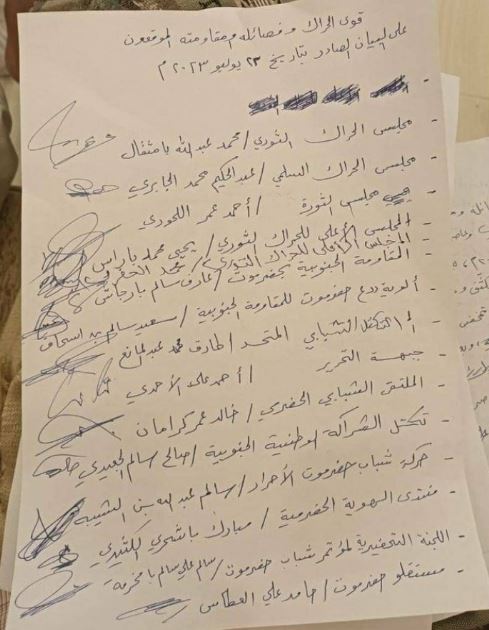 قوى الحراك وفصائله ومقاومته الموقعون
على البيان الصادر بتاريخ ٢٣ يوليو ٢٠٢٣م
- مجلس الحراك الثوري / محمد عبدالله بامثقال
- مجلس الحراك السلمي / عبدالحكيم محمد الجابري
- مجلس الثورة / أحمد عمر
- المجلس الأعلى للحراك الثوري / يحيى محمد باراس
المجلس الأعلى للحراك الثوري / محمد
- المقاومة الجنوبية بحضرموت / عارف سالم
- ألوية درع حضرموت للمقاومة الجنوبية / سعيد سالم بن اسحاق
- التكتل الشبابي المتحد / طارق محمد عبدالمانع
- جبهة التحرير / أحمد علي الأحمدي
- الملتقى الشبابي الحضرمي / خالد عمر كرامان
- تكتل الشراكة الوطنية الجنوبية / صالح سالم
- حركة شباب حضرموت الأحرار / سالم عبدالله بن الشيبه
- منتدى الهوية الحضرمية / مبارك باشحري الكثيري
- اللجنة التحضيرية لمؤتمر شباب حضرموت / سالم علي سالم بامخرمة
- مستقلو حضرموت / حامد علي العطاس